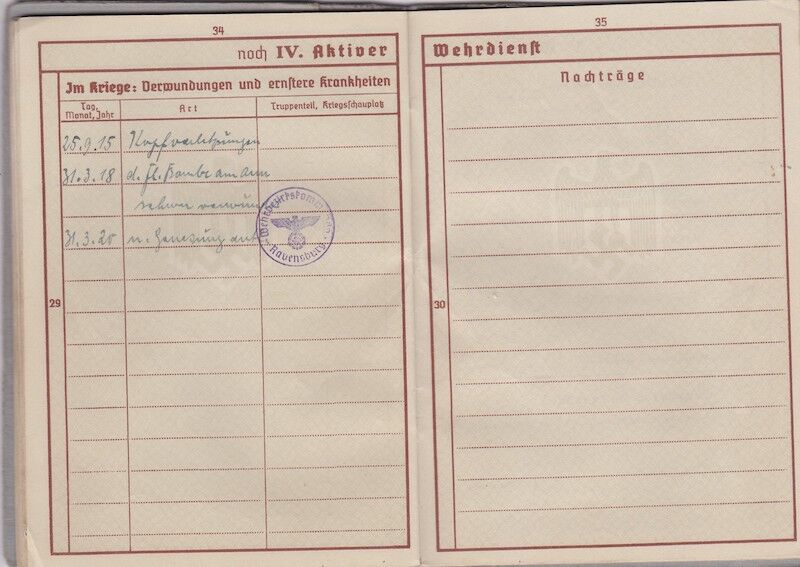 34
noch IV. Aktiver
Im Kriege: Verwundungen und ernstere Krankheiten
Tag, Monat, Jahr
Art
Truppenteil, Kriegsschauplatz
25.9.15 Kopfverletzungen
31.3.18 d. Fl. Bombe am Arm
schwer verwundet
31.3.20 n. Genesung ent
29
Wehrbezirkskommando
Ravensburg
35
Wehrdienst
Nachträge
30